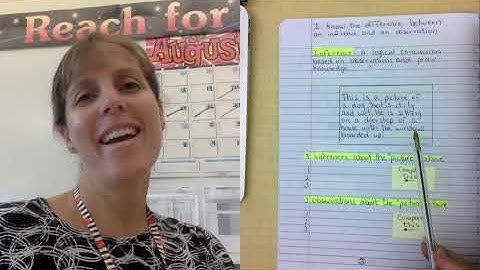 Reach for
August
I know the difference between
an inference and an observation.
Inference: A logical conclusion
based on observations and prior
knowledge.
This is a picture of
a dog that is dirty
and wet. He is sitting
on a doorstep of a
house with the window
boarded up.
3 Inferences about the picture above
1
2
3
Complete
this
3 observations about the picture above
1
2
3
Complete
this